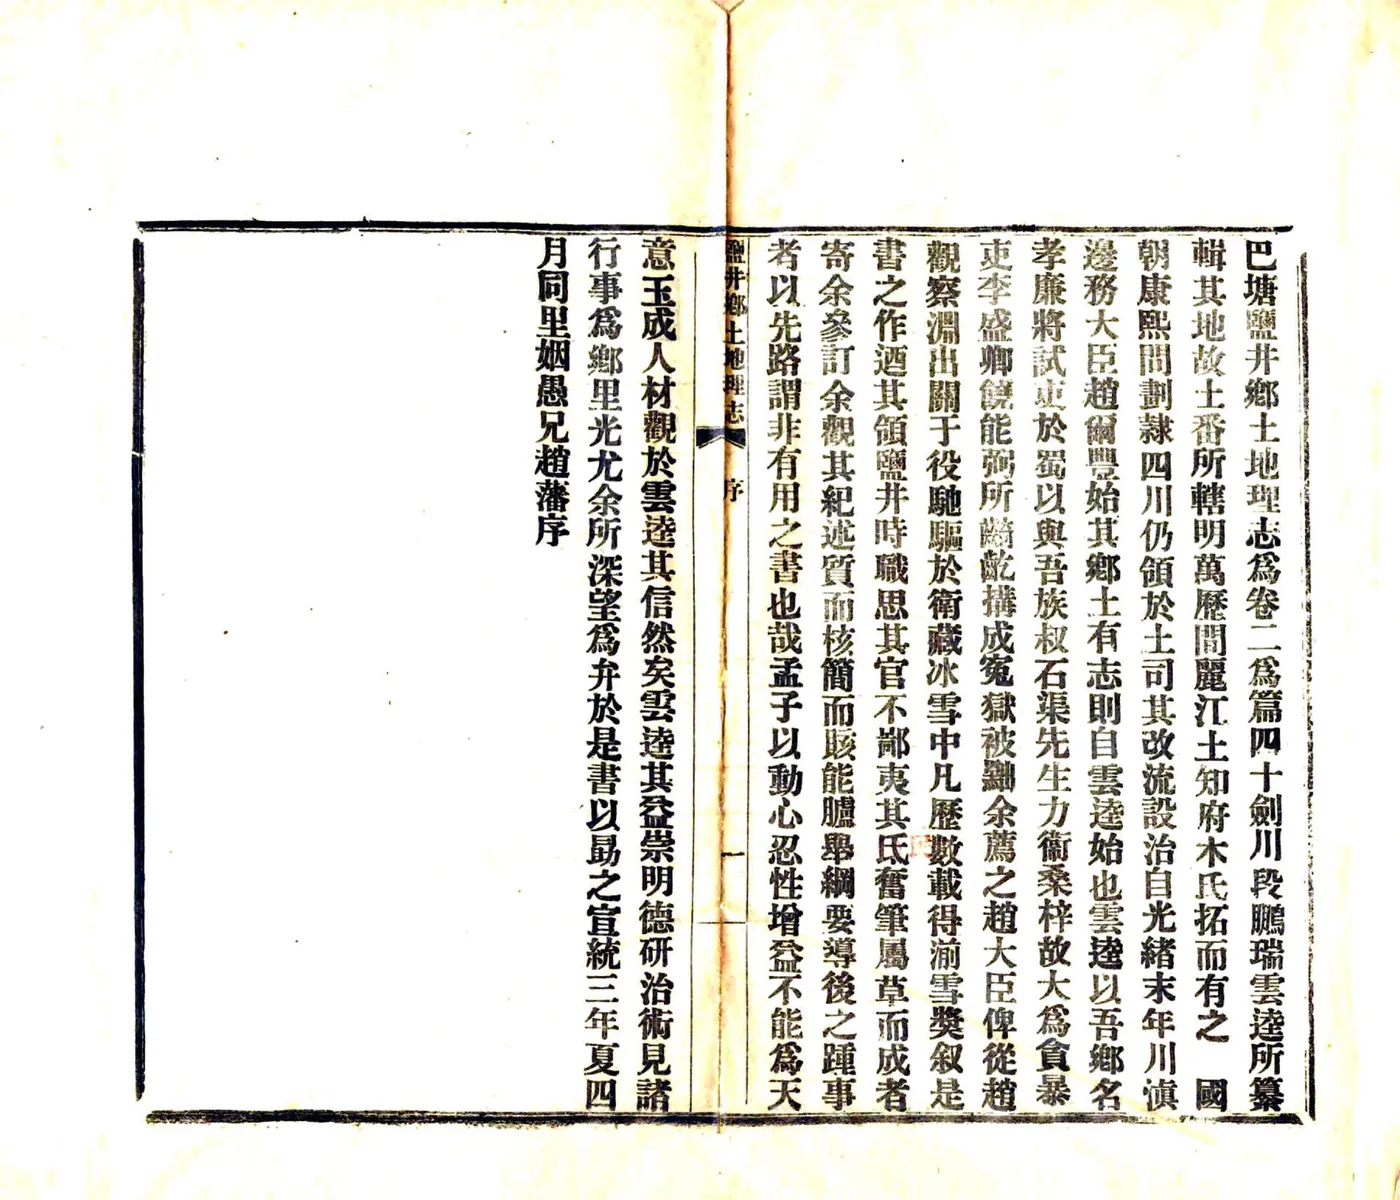 巴塘鹽井鄉土地理志爲卷二爲篇四十劍川段鵬瑞雲逵所纂
輯其地故土番所轄明萬歷間麗江土知府木氏拓而有之　國
朝康熙間劃隸四川仍領於土司其改流設治自光緒末年川滇
邊務大臣趙爾豐始其鄉土有志則自雲逵始也雲逵以吾鄉名
孝廉將試吏於蜀以與吾族叔石渠先生力衞桑梓故大爲貪暴
吏李盛卿饒能弼所齮齕搆成寃獄被黜余薦之趙大臣俾從趙
觀察淵出關于役馳驅於衛藏冰雪中凡歷數載得湔雪獎叙是
書之作迺其領鹽井時職思其官不鄙夷其氓奮筆屬草而成者
寄余參訂余觀其紀述質而核簡而賅能臚舉綱要導後之踵事
者以先路謂非有用之書也哉孟子以動心忍性增益不能爲天
鹽井鄉土地理志　序　一
意玉成人材觀於雲逵其信然矣雲逵其益崇明德研治術見諸
行事爲鄉里光尤余所深望爲弁於是書以勗之宣統三年夏四
月同里姻愚兄趙藩序